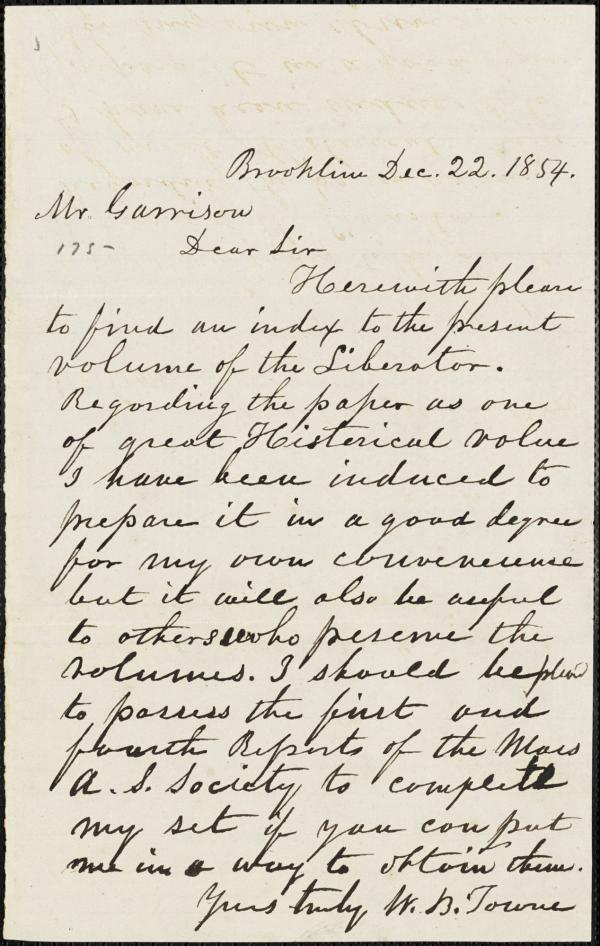 Brookline Dec. 22. 1854.
Mr. Garrison
175-
Dear Sir
Herewith please
to find an index to the present
volume of the Liberator.
Regarding the paper as one
of great Histerical value
I have been induced to
prepare it in a good degree
for my own convenience
but it will also be useful
to others who preserve the
volumes. I should be pleased
to possess the first and
fourth Reports of the Mass
A. S. Society to complete
my set if you can put
me in a way to obtain them.
Yurs truly W. B. Towne